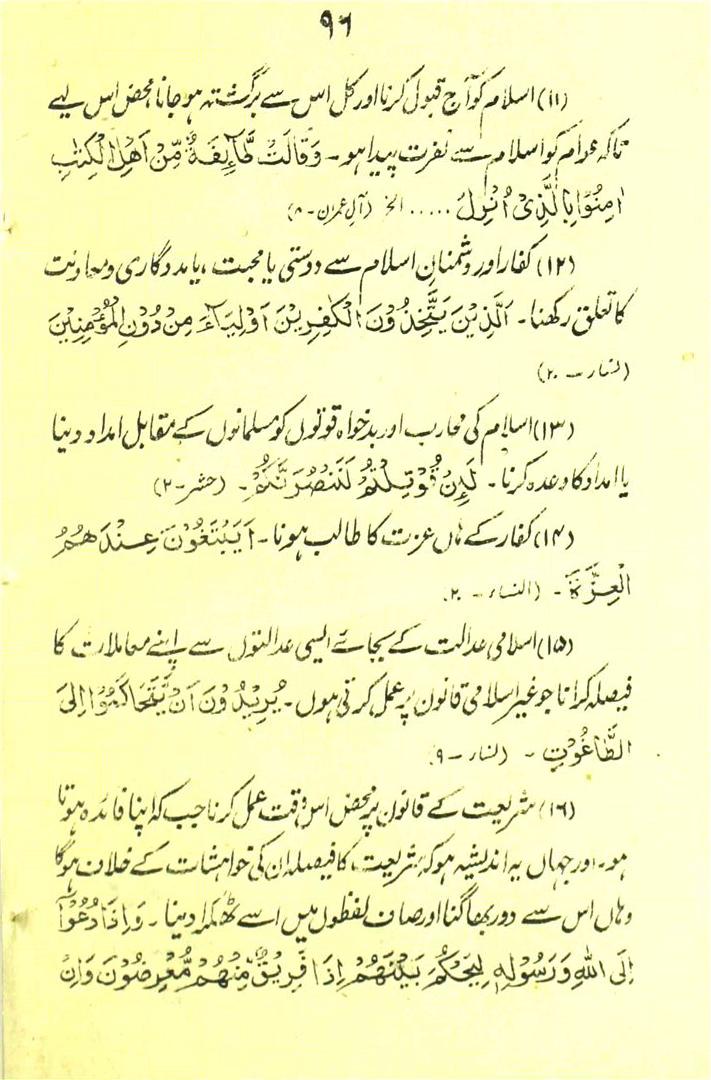 ۹۶
(۱۱) اسلام کو آج قبول کرنا اور کل اس سے برگشتہ ہو جانا محض اس لیے
تاکہ عوام کو اسلام سے نفرت پیدا ہو۔ وَقَالَتْ طَّآئِفَةٌ مِّنْ اَهْلِ الْكِتٰبِ
اٰمِنُوْا بِالَّذِىْ اُنْزِلَ ..... الخ (آل عمرٰن - ۸)
(۱۲) کفار اور دشمنانِ اسلام سے دوستی یا محبت، یا مددگاری و معاونت
کا تعلق رکھنا۔ اَلَّذِيْنَ يَتَّخِذُوْنَ الْكٰفِرِيْنَ اَوْلِيَآءَ مِنْ دُوْنِ الْمُؤْمِنِيْنَ
(النساء - ۲۰)
(۱۳) اسلام کی محارب اور بدخواہ قوتوں کو مسلمانوں کے مقابل امداد دینا
یا امداد کا وعدہ کرنا۔ لَئِنْ قُوْتِلْتُمْ لَنَنْصُرَنَّكُمْ۔ (حشر - ۲)
(۱۴) کفار کے ہاں عزت کا طالب ہونا۔ اَيَبْتَغُوْنَ عِنْدَهُمُ
الْعِزَّةَ۔ (النساء - ۲۰)
(۱۵) اسلامی عدالت کے بجائے ایسی عدالتوں سے اپنے معاملات کا
فیصلہ کرانا جو غیر اسلامی قانون پر عمل کرتی ہوں۔ يُرِيْدُوْنَ اَنْ يَّتَحَاكَمُوْا اِلَى
الطَّاغُوْتِ - (النساء - ۹)
(۱۶) شریعت کے قانون پر محض اس وقت عمل کرنا جب کہ اپنا فائدہ ہوتا
ہو۔ اور جہاں یہ اندیشہ ہو کہ شریعت کا فیصلہ ان کی خواہشات کے خلاف ہوگا
وہاں اس سے دور بھاگنا اور صاف لفظوں میں اسے ٹھکرا دینا۔ وَاِذَا دُعُوْآ
اِلَى اللّٰهِ وَرَسُوْلِهٖ لِيَحْكُمَ بَيْنَهُمْ اِذَا فَرِيْقٌ مِّنْهُمْ مُّعْرِضُوْنَ وَاِنْ